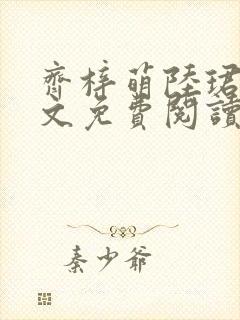 齊梓萌陸珺
文免費閱讀
秦少爺